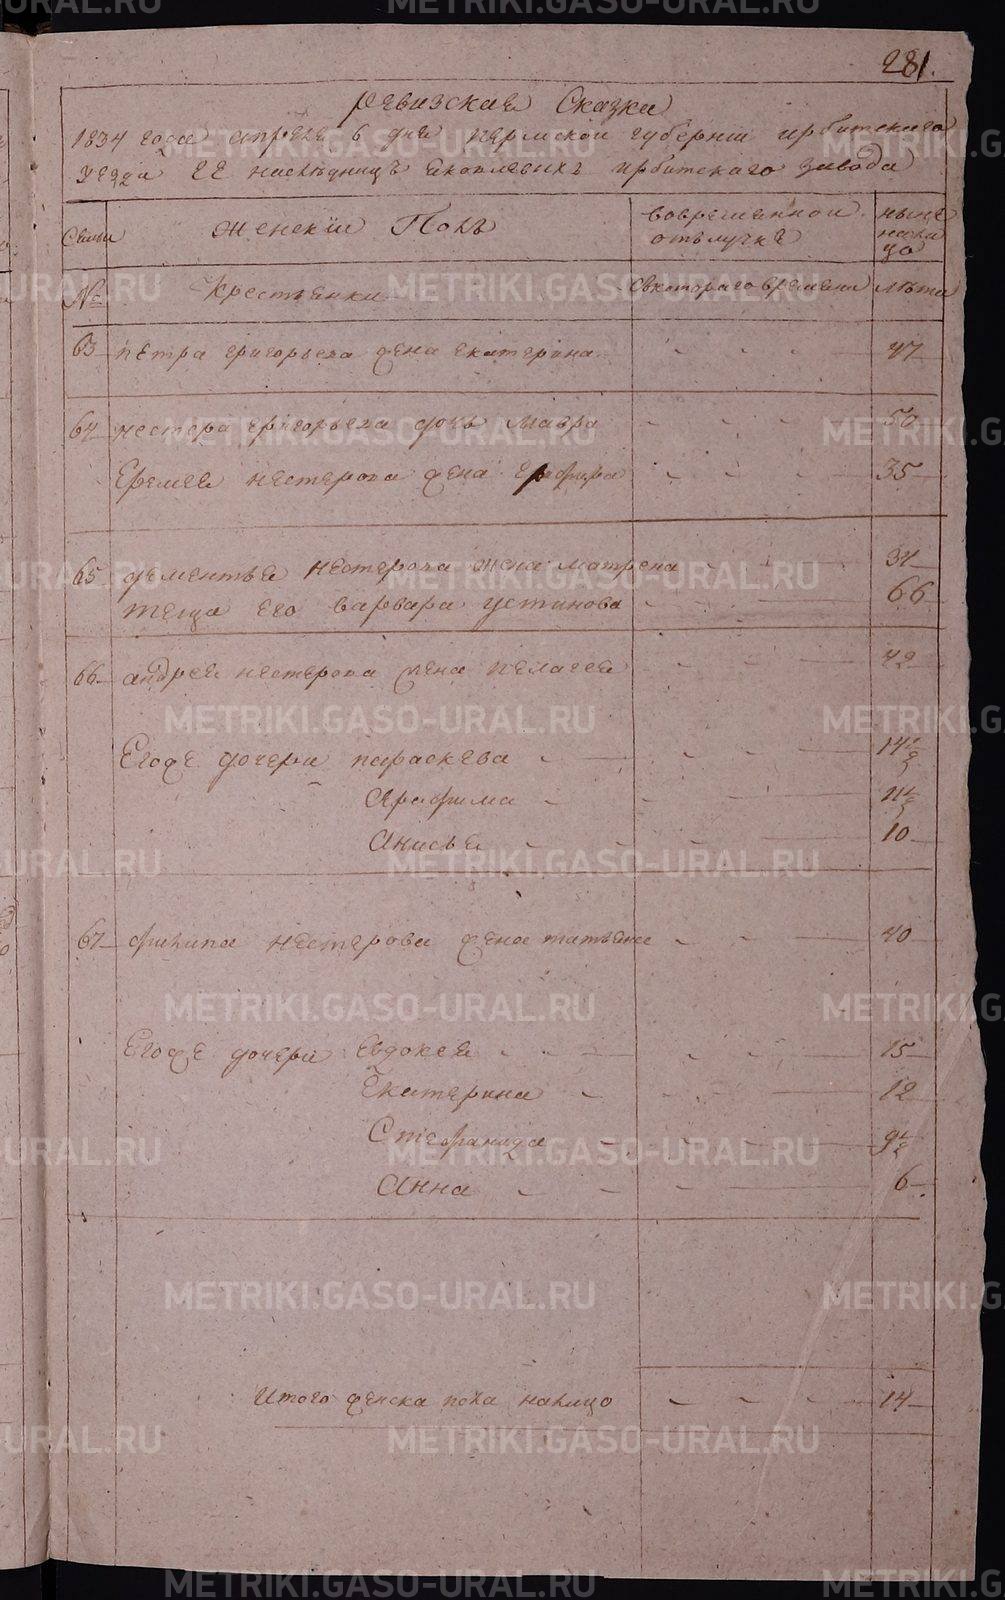 281.
Ревизская Сказка
1834 года апреля 6 дня пермской губернии ирбитскаго
уезда ЕЕ наследницъ яковлевыхъ ирбитскаго завода
Семьи
женский Полъ
вовременной отълучке
ныне налицо
№
крестьянки
Скотораго времени
лета
63 петра григорьева жена екатерина 47
64 нестера григорьева дочь мавра 50
Еремея нестерова жена 35
65 дементья нестерова жена матрена 31
теща его варвара устинова 66
66 андрея нестерова жена пелагея 42
Егоже дочери параскева 14 1/2
Афимья 11 1/2
Анисья 10
67 филипа нестерова жена татьяна 40
Егоже дочери Евдокея 15
Екатерина 12
Стефанида 9 1/2
Анна 6
Итого женска пола налицо 14
METRIKI.GASO-URAL.RU